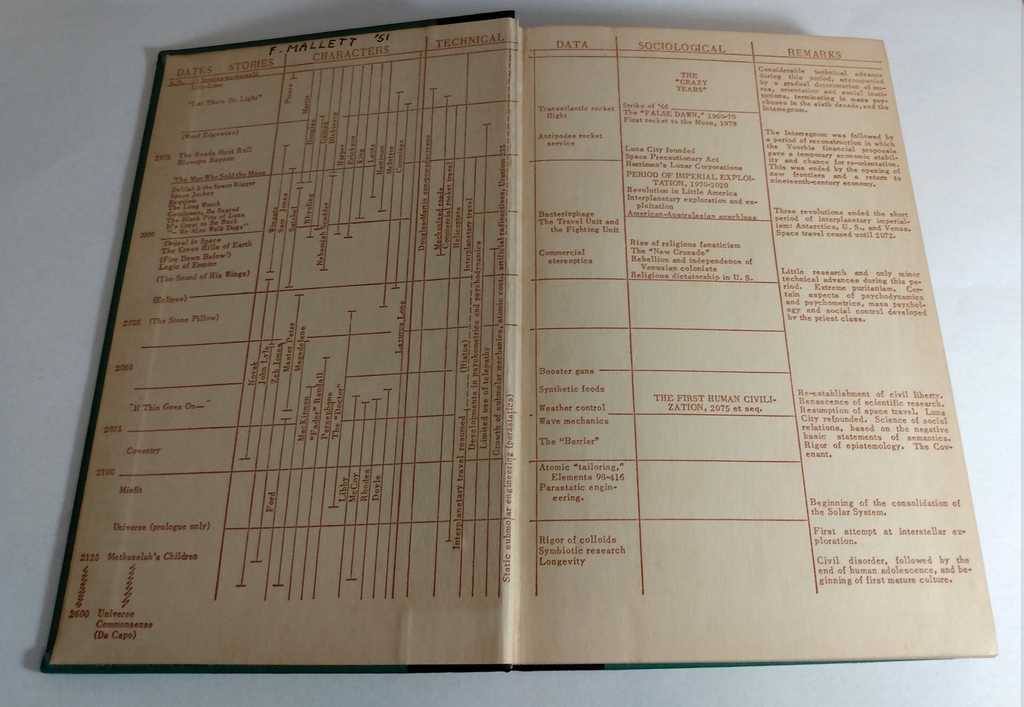 F. MALLETT '51
DATES STORIES CHARACTERS TECHNICAL
Life-Line
"Let There Be Light"
(Word Edgewise)
1975 The Roads Must Roll
Blowups Happen
The Man Who Sold the Moon
Delilah & the Space Rigger
Space Jockey
Requiem
The Long Watch
Gentlemen, Be Seated
The Black Pits of Luna
"It's Great to Be Back"
"- We Also Walk Dogs"
2000
Ordeal in Space
The Green Hills of Earth
(Fire Down Below!)
Logic of Empire
(The Sound of His Wings)
(Eclipse)
2025 (The Stone Pillow)
2050
"If This Goes On—"
2075
Coventry
2100
Misfit
Universe (prologue only)
2125 Methuselah's Children
2600 Universe
Commonsense
(Da Capo)
Pinero
Martin
Douglas
Harper
Erickson
King
Lentz
Harriman
McIntyre
Cummings
Wingate
Sam Jones
Satchel
Rhysling
Nehemiah Scudder
Lazarus Long
Novak
John Lyle
Zeb Jones
Master Peter
Magdelene
MacKinnon
"Fader" Randall
Persephone
The "Doctor"
Ford
Libby
McCoy
Rhodes
Doyle
Douglas-Martin sunpower screens
Mechanized roads
Commercial rocket travel
Helicopters
Interplanetary travel
(Hiatus)
Interplanetary travel resumed
Developments in psychometrics and psychodynamics
Limited use of telepathy
Growth of submolar mechanics, atomic control, artificial radioactives, Uranium 235
Static submolar engineering (parastatics)
DATA SOCIOLOGICAL REMARKS
Transatlantic rocket
flight
Antipodes rocket
service
Bacteriophage
The Travel Unit and
the Fighting Unit
Commercial
stereoptics
Booster guns
Synthetic foods
Weather control
Wave mechanics
The "Barrier"
Atomic "tailoring,"
Elements 98-416
Parastatic engin-
eering.
Rigor of colloids
Symbiotic research
Longevity
THE
"CRAZY
YEARS"
Strike of '66
The "FALSE DAWN," 1960-70
First rocket to the Moon, 1978
Luna City founded
Space Precautionary Act
Harriman's Lunar Corporations
PERIOD OF IMPERIAL EXPLOI-
TATION, 1970-2020
Revolution in Little America
Interplanetary exploration and ex-
ploitation
American-Australasian anschluss
Rise of religious fanaticism
The "New Crusade"
Rebellion and independence of
Venusian colonists
Religious dictatorship in U. S.
THE FIRST HUMAN CIVILI-
ZATION, 2075 et seq.
Considerable technical advance
during this period, accompanied
by a gradual deterioration of mo-
res, orientation and social insti-
tutions, terminating in mass psy-
choses in the sixth decade, and the
Interregnum.
The Interregnum was followed by
a period of reconstruction in which
the Voorhis financial proposals
gave a temporary economic stabil-
ity and chance for re-orientation.
This was ended by the opening of
new frontiers and a return to
nineteenth-century economy.
Three revolutions ended the short
period of interplanetary imperial-
ism: Antarctica, U. S., and Venus.
Space travel ceased until 2072.
Little research and only minor
technical advances during this pe-
riod. Extreme puritanism. Cer-
tain aspects of psychodynamics
and psychometrics, mass psychol-
ogy and social control developed
by the priest class.
Re-establishment of civil liberty.
Renascence of scientific research.
Resumption of space travel. Luna
City refounded. Science of social
relations, based on the negative
basic statements of semantics.
Rigor of epistemology. The Cov-
enant.
Beginning of the consolidation of
the Solar System.
First attempt at interstellar ex-
ploration.
Civil disorder, followed by the
end of human adolescence, and be-
ginning of first mature culture.